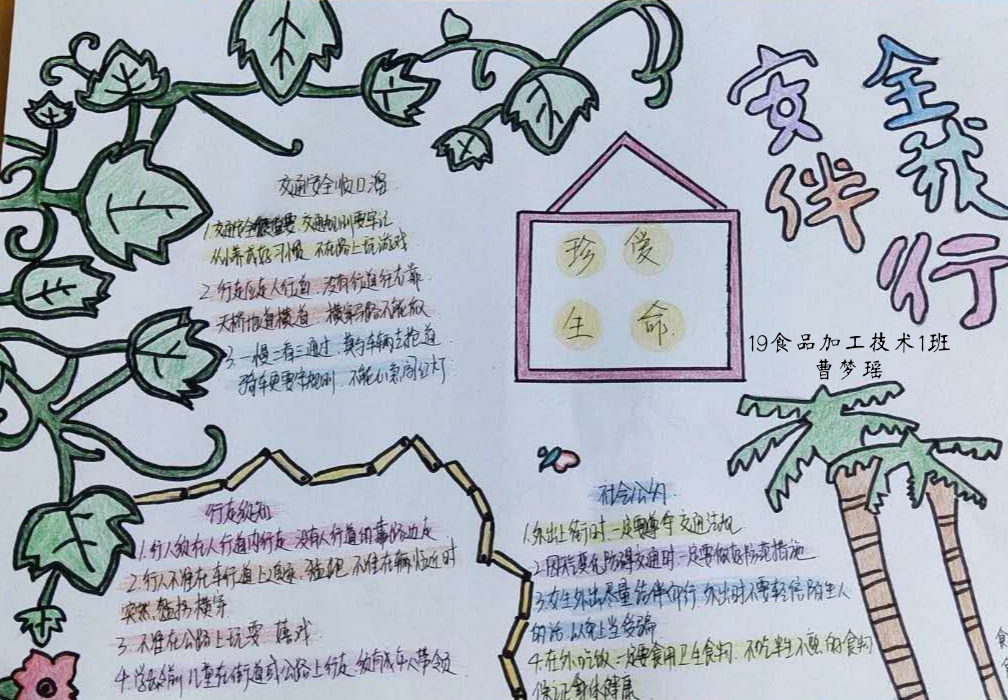 安全伴我行
19食品加工技术1班
曹梦瑶
珍爱
生命
交通安全顺口溜
1.交通安全很重要 交通规则要牢记
从小养成好习惯 不在路上玩游戏
2.行走应走人行道 没有行道往右靠
天桥地道横道 横穿马路不能做
3.一慢二看三通过 莫与车辆去抢道
骑车更要守规则 不能心急闯红灯
行走须知
1.行人须在人行道内行走 没有人行道的靠路边走
2.行人不准在车行道上追逐、猛跑 不准在车辆临近时
突然猛拐横穿
3.不准在公路上玩耍 嬉戏
4.学龄前儿童在街道或公路上行走 须有成年人带领
社会公约
1.外出上街时一定要遵守交通法规
2.因病变化防碍交通时一定要做好防范措施
3.女生外出尽量结伴而行 外出时不要轻信陌生人
的话 以免上当受骗
4.在外吃饭一定要食用卫生食物 不吃半生不熟的食物
保证身体健康
食